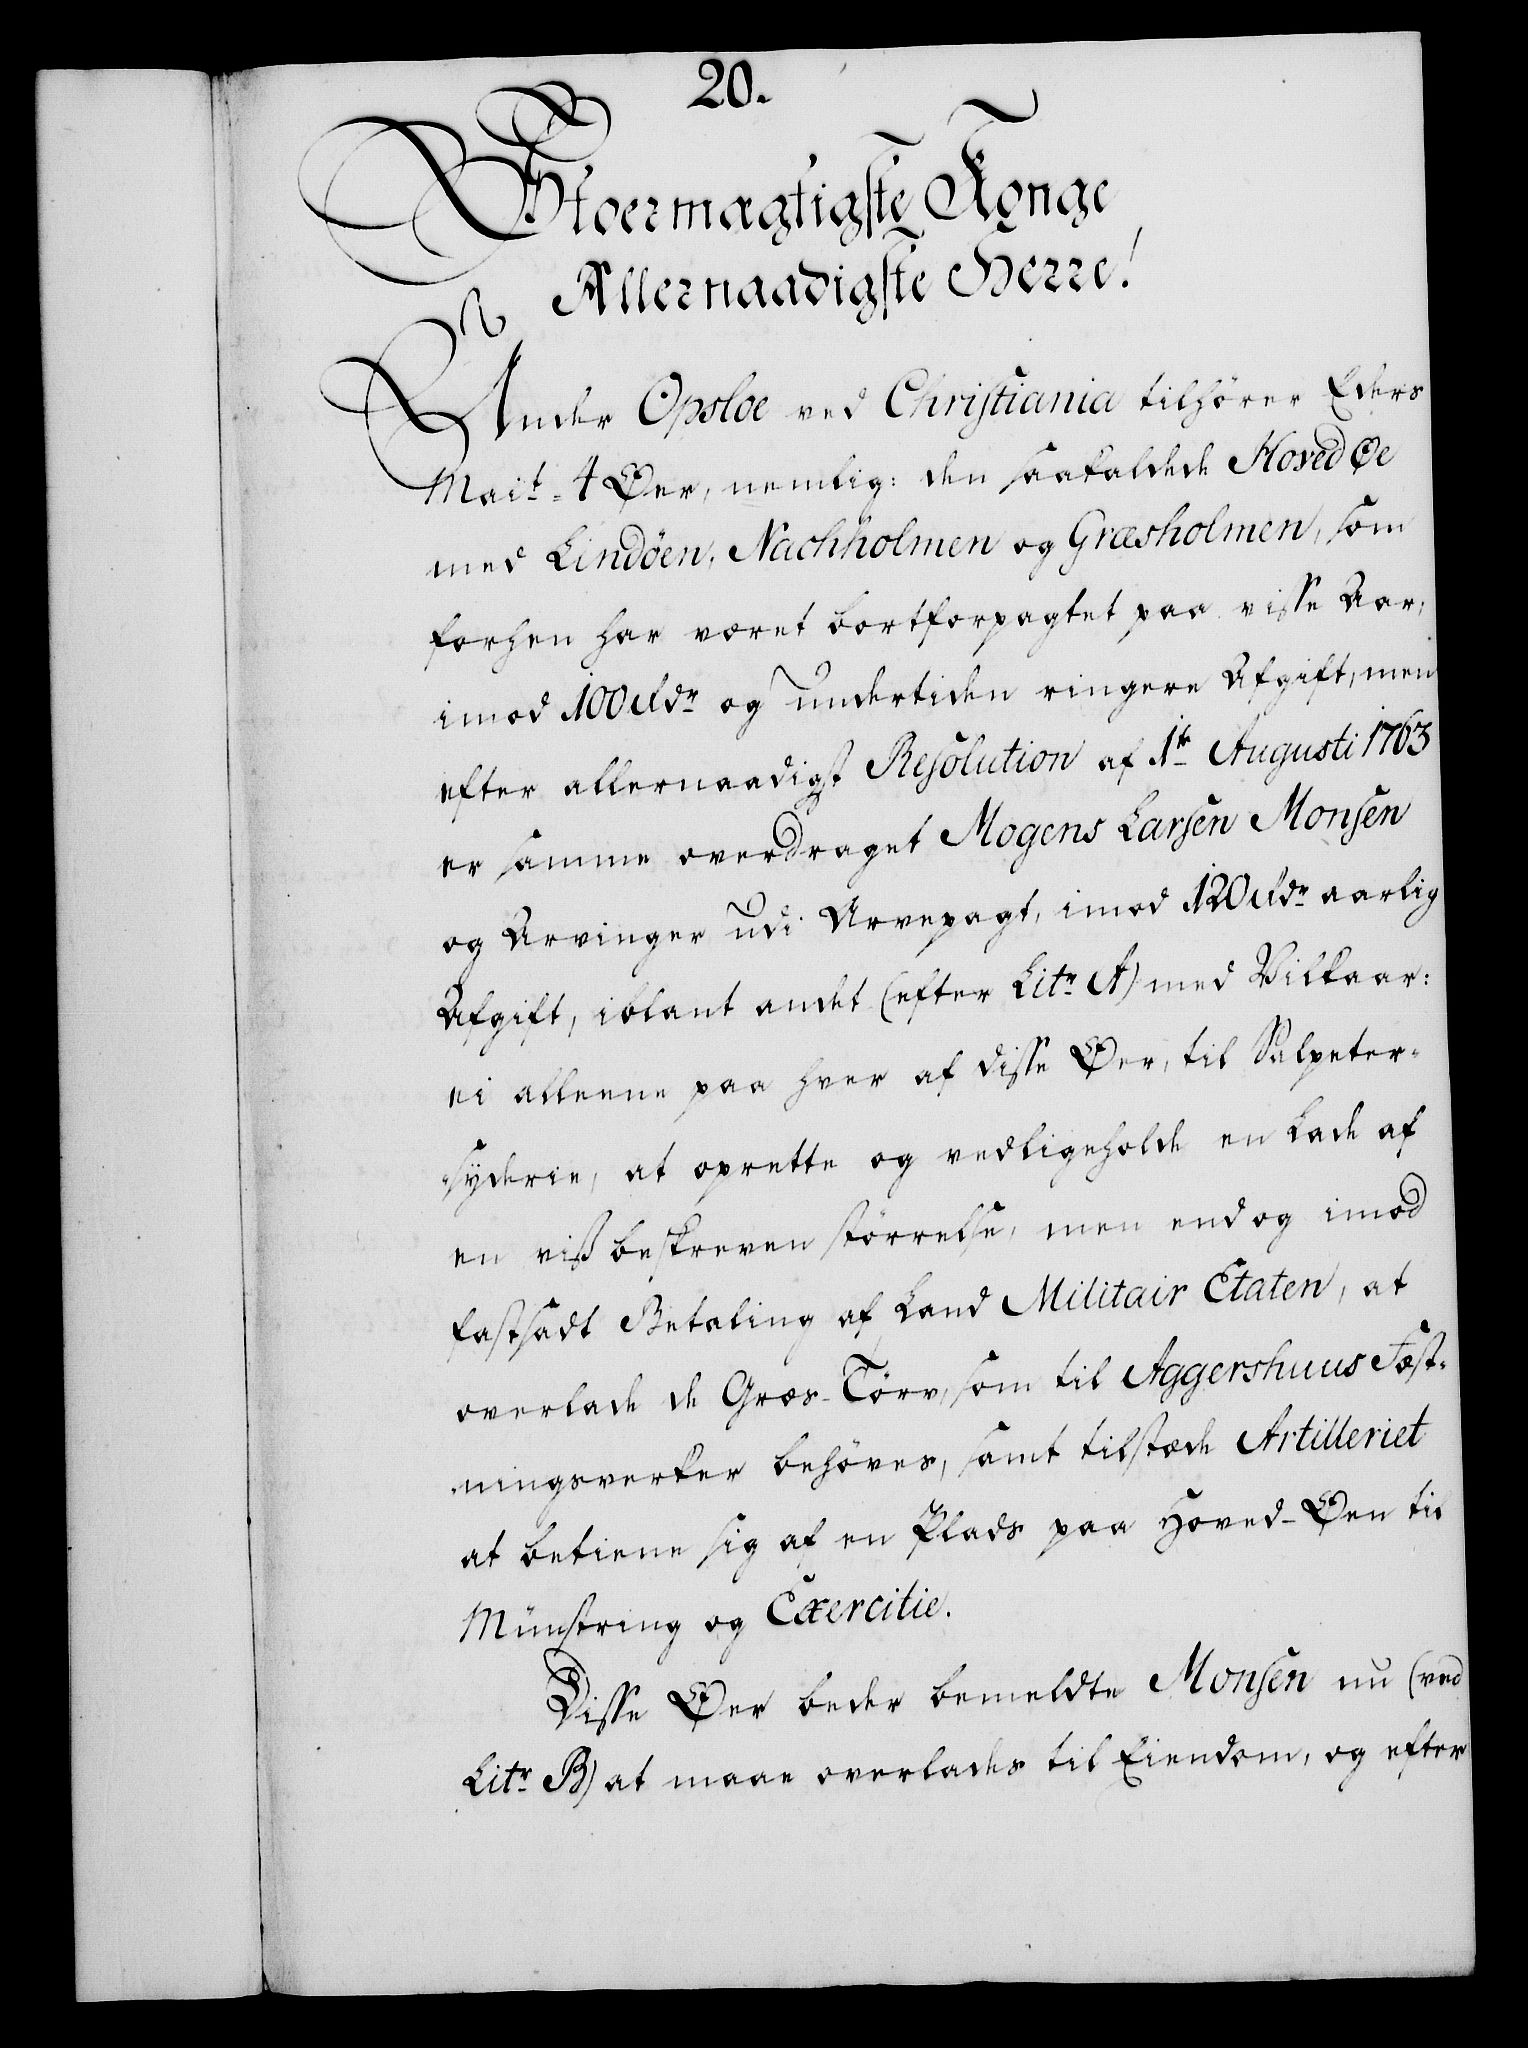 20.
Stoermægtigste Konge
Allernaadigste Herre!
Under Opsloe ved Christiania tilhører Eders
Mait. 4 Øer, nemlig: den saakaldede Hoved Øe
med Lindöen, Nachholmen og Græsholmen, som
forhen har været bortforpagtet paa visse Aar,
imod 100 Rdr og undertiden ringere Afgift, men
efter allernaadigst Resolution af 1te Augusti 1763
er samme overdraget Mogens Larsen Monsen
og Arvinger udi Arvepagt, imod 120 Rdr aarlig
Afgift, iblant andet (efter Litr A) med Vilkaar:
ei alleene paa hver af disse Øer, til Salpeter-
syderie, at oprette og vedligeholde en Lade af
en viß beskreven störrelse, men endog imod
fastsadt Betaling af Land Militair Etaten, at
overlade de Græs-Törv, som til Aggershuus Fæst-
ningsverker behöves, samt tilstæde Artilleriet
at betiene sig af en Plads paa Hoved-Øen til
Münstring og Exercitie.
Disse Øer beder bemeldte Monsen nu (ved
Litr B) at maae overlades til Eiendom, og efter